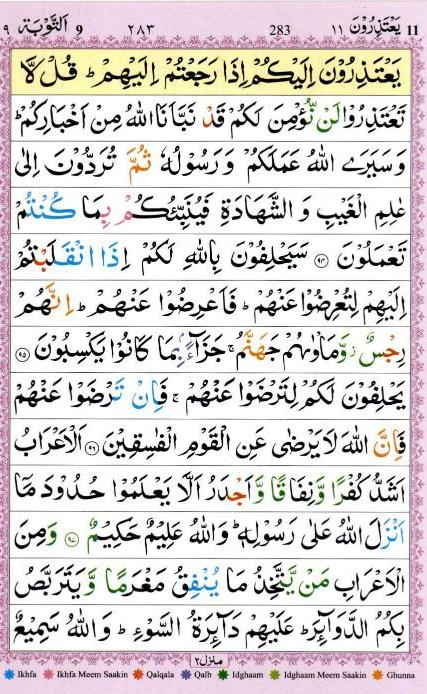 11 یَعْتَذِرُوْنَ ١١ 283 ٢٨٣ 9 اَلتَّوْبَة ٩
یَعْتَذِرُوْنَ اِلَیْكُمْ اِذَا رَجَعْتُمْ اِلَیْهِمْ ؕ قُلْ لَّا
تَعْتَذِرُوْا لَنْ نُّؤْمِنَ لَكُمْ قَدْ نَبَّاَنَا اللّٰهُ مِنْ اَخْبَارِكُمْ ؕ
وَ سَیَرَی اللّٰهُ عَمَلَكُمْ وَ رَسُوْلُهٗ ثُمَّ تُرَدُّوْنَ اِلٰی
عٰلِمِ الْغَیْبِ وَ الشَّهَادَةِ فَیُنَبِّئُكُمْ بِمَا كُنْتُمْ
تَعْمَلُوْنَ ﴿٩٤﴾ سَیَحْلِفُوْنَ بِاللّٰهِ لَكُمْ اِذَا انْقَلَبْتُمْ
اِلَیْهِمْ لِتُعْرِضُوْا عَنْهُمْ ؕ فَاَعْرِضُوْا عَنْهُمْ ؕ اِنَّهُمْ
رِجْسٌ ؗ وَّ مَاْوٰىهُمْ جَهَنَّمُ ۚ جَزَآءًۢ بِمَا كَانُوْا یَكْسِبُوْنَ ﴿٩٥﴾
یَحْلِفُوْنَ لَكُمْ لِتَرْضَوْا عَنْهُمْ ۚ فَاِنْ تَرْضَوْا عَنْهُمْ
فَاِنَّ اللّٰهَ لَا یَرْضٰی عَنِ الْقَوْمِ الْفٰسِقِیْنَ ﴿٩٦﴾ اَلْاَعْرَابُ
اَشَدُّ كُفْرًا وَّ نِفَاقًا وَّ اَجْدَرُ اَلَّا یَعْلَمُوْا حُدُوْدَ مَاۤ
اَنْزَلَ اللّٰهُ عَلٰی رَسُوْلِهٖ ؕ وَ اللّٰهُ عَلِیْمٌ حَكِیْمٌ ﴿٩٧﴾ وَ مِنَ
الْاَعْرَابِ مَنْ یَّتَّخِذُ مَا یُنْفِقُ مَغْرَمًا وَّ یَتَرَبَّصُ
بِكُمُ الدَّوَآئِرَ ؕ عَلَیْهِمْ دَآئِرَةُ السَّوْءِ ؕ وَ اللّٰهُ سَمِیْعٌ
منزل ٢
Ikhfa Ikhfa Meem Saakin Qalqala Qalb Idghaam Idghaam Meem Saakin Ghunna